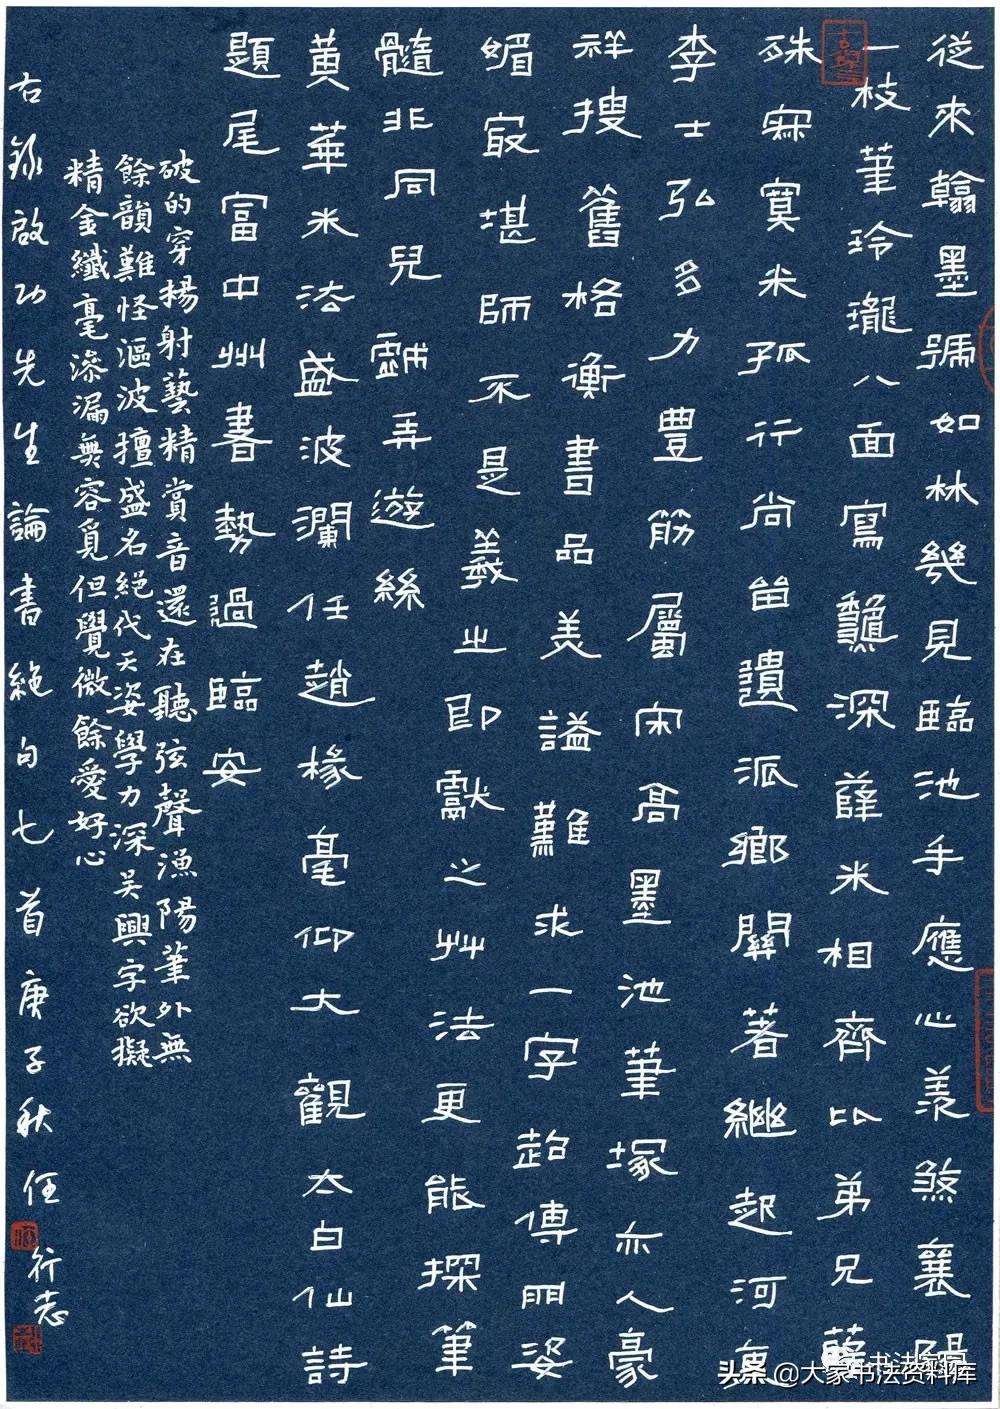 從來翰墨號如林幾見臨池手應心羨煞襄陽
一枝筆玲瓏八面寫龢深薛米相齊比弟兄薛
殊寂寞米孤行尚留遺派鄉關著繼起河
李士弘多力豐筋屬宋高墨池筆塚亦人豪
祥搜舊格衡書品美謚難求一字超傳朋姿
媚最堪師不是羲之即獻之艸法更能探筆
髓非同兒戲弄遊絲
黃華米法盛波瀾任趙椽毫仰大觀太白仙詩
題尾富中州書勢過臨安
破的穿揚射藝精賞音還在聽弦聲漁陽筆外無
餘韻難怪漚波擅盛名絕代天姿學力深吳興字欲擬
精金纖毫滲漏無容覓但覺微餘愛好心
右錄啟功先生論書絕句七首庚子秋任
行志
头条 @大家书法资料库